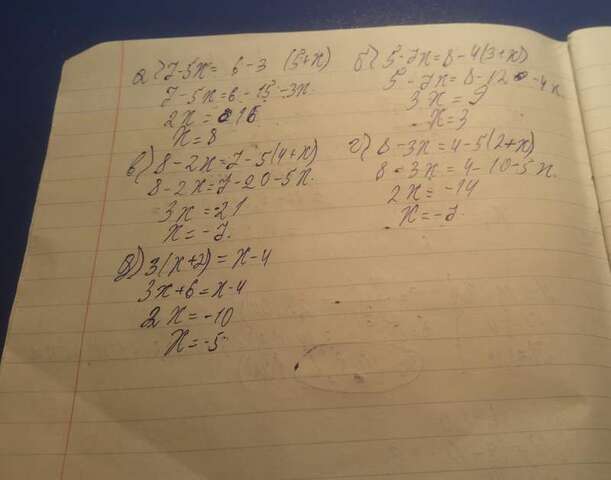 а) 7-5x = 6-3 (5+x)
7-5x = 6-15-3x
2x = 16
x = 8
б) 5-7x = 8-4(3+x)
5-7x = 8-12-4x
3x = 9
x = 3
в) 8-2x = 7-5(4+x)
8-2x = 7-20-5x
3x = -21
x = -7
г) 8-3x = 4-5(2+x)
8-3x = 4-10-5x
2x = -14
x = -7
д) 3(x+2) = x-4
3x+6 = x-4
2x = -10
x = -5